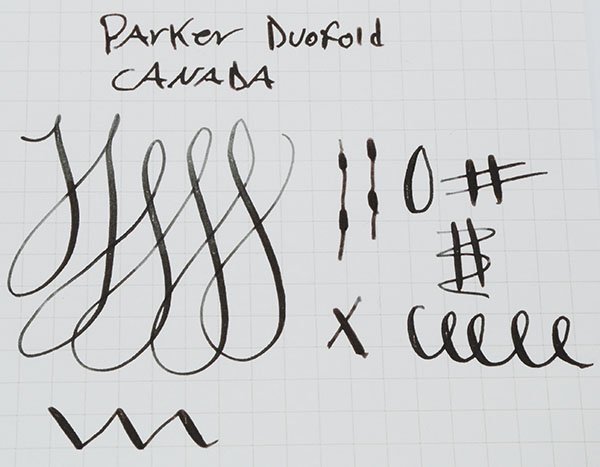 Parker Duofold
CANADA